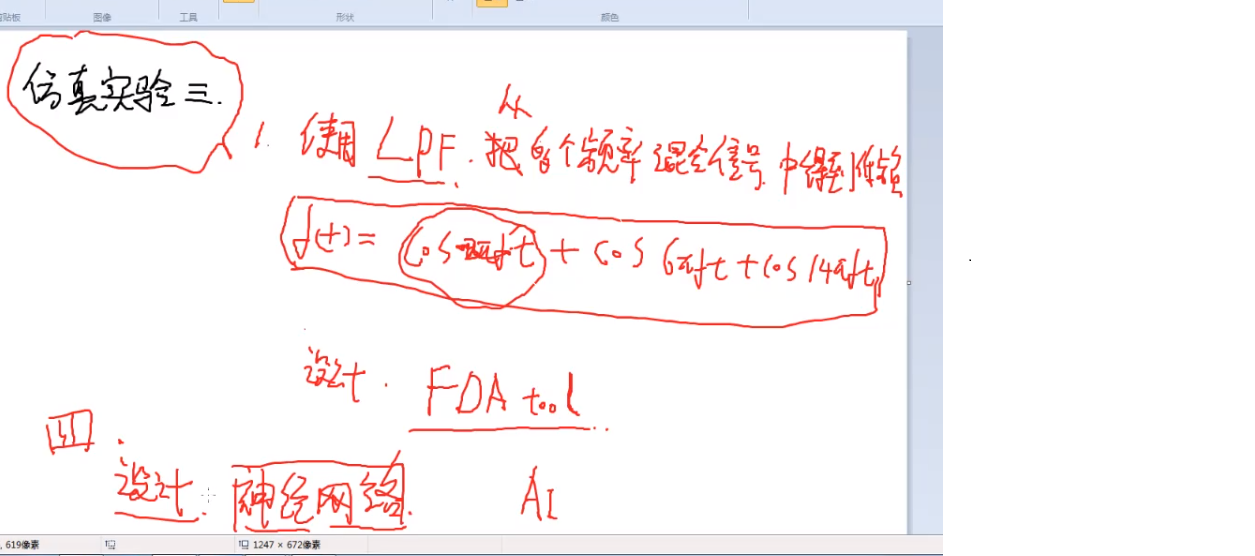 剪贴板 图像 工具 形状 颜色
仿真实验三.
从
1. 使用 LPF. 把多个频率混合信号.中得到低频
f(t) = cos 2πft + cos 6πft + cos 14πft
设计. FDA tool
四.
设计. 神经网络. AI
, 619像素 1247 × 672像素